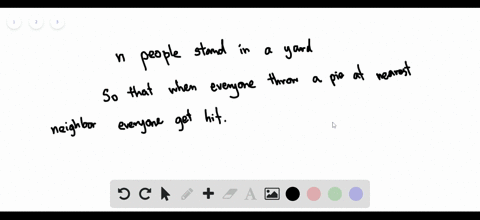 1 2 3
n people stand in a yard
So that when everyone throw a pie at nearest
neighbor everyone get hit.
A